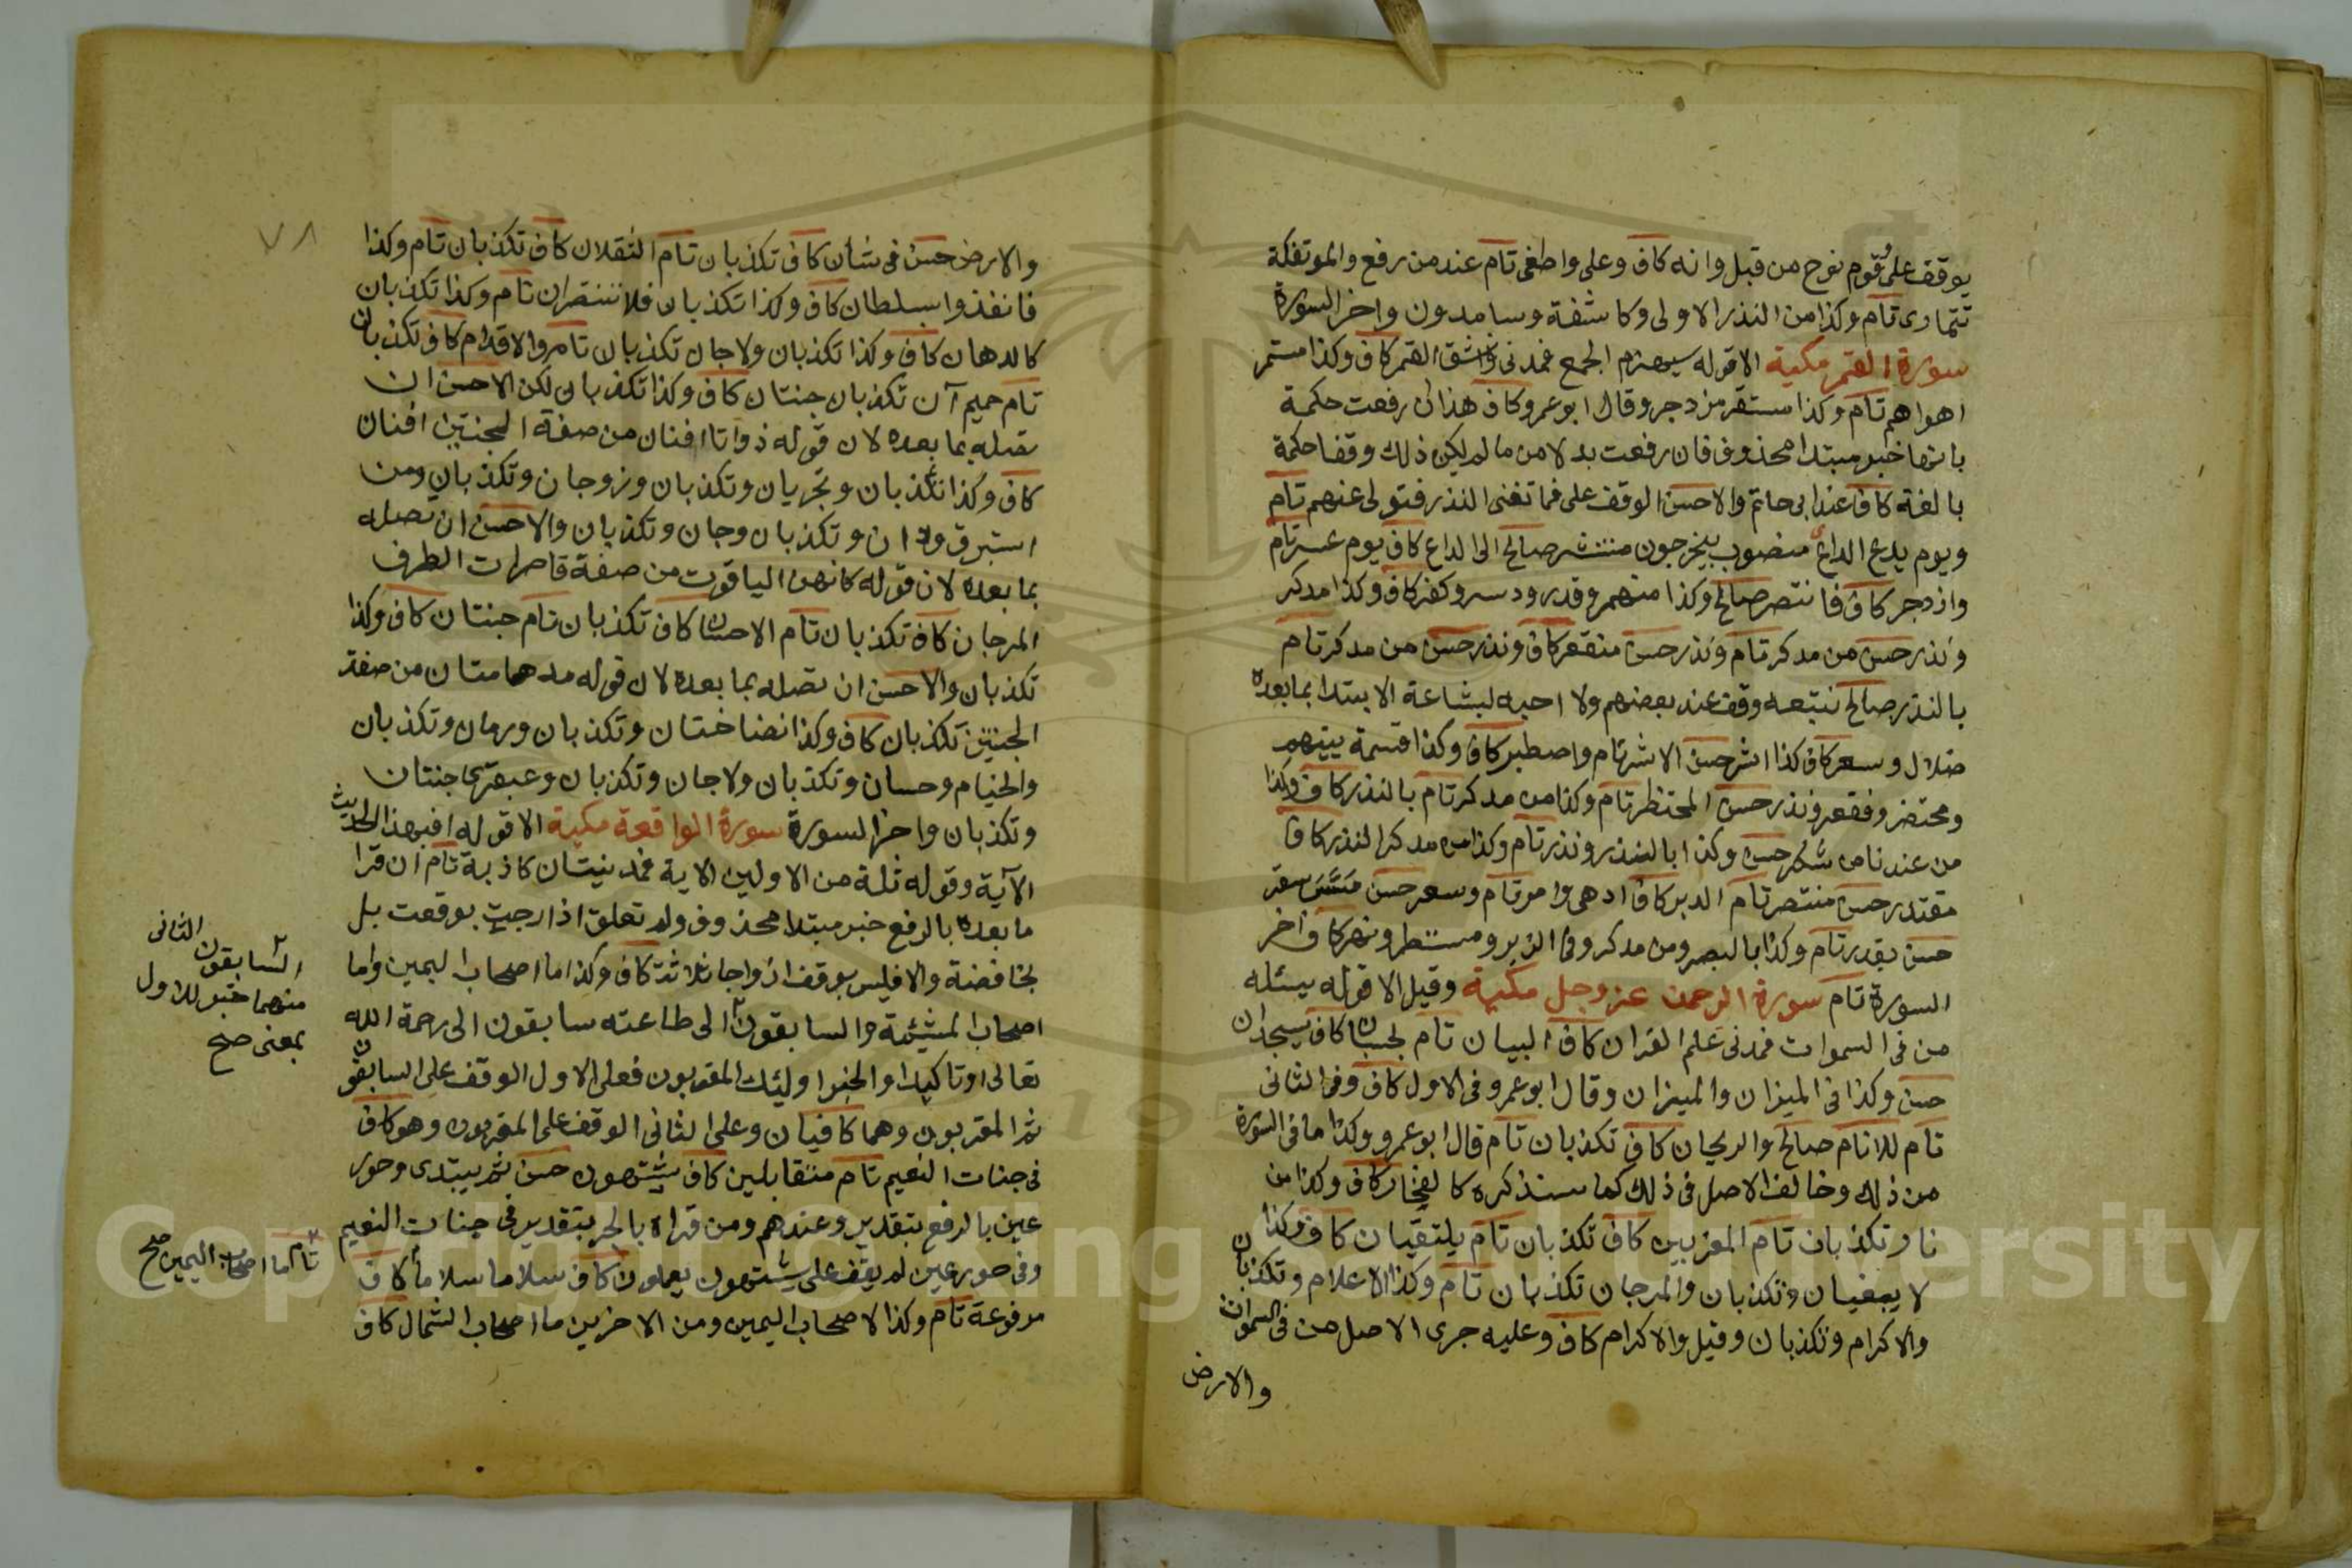 يوقف على قوم نوح من قبل وانه كاف وعلى واطغى تام عند من رفع والموتفكة
تتمارى تام وكذا من النذر الاولى وكاشفة وسامدون واخر السورة
سورة القمر مكية الا قوله سيهزم الجمع فمدنى وانشق القمر كاف وكذا مستمر
اهواهم تام وكذا مستقر مزدجر وقال ابو عمرو كاف هذا ان رفعت حكمة
بانها خبر مبتدا محذوف فان رفعت بدلا من ما لم يكن ذلك وقفا حكمة
بالغة كاف عند ابى حاتم والاحسن الوقف على فما تغنى النذر فتولى عنهم تام
ويوم يدع الداع منصوب بيخرجون منتشر صالح الى الداع كاف يوم عسر تام
وازدجر كاف فانتصر صالح وكذا منهمر وقدر ودسر وكفر كاف وكذا مدكر
ونذر حسن من مدكر تام ونذر حسن منقعر كاف ونذر حسن من مدكر تام
بالنذر صالح نتبعه وقف عند بعضهم ولا احبه لبشاعة الابتدا بما بعده
ضلال وسعر كاف كذا اشر حسن الاشر تام واصطبر كاف وكذا قسمة بينهم
ومحتضر وفعقر ونذر حسن المحتظر تام وكذا من مدكر تام بالنذر كاف وكذا
من عندنا من شكر حسن وكذا بالنذر ونذر تام وكذا من مدكر النذر كاف
مقتدر حسن منتصر تام الدبر كاف ادهى وامر تام وسعر حسن مس سقر
حسن بقدر تام وكذا بالبصر ومن مدكر وفى الزبر ومستطر ونهر كاف اخر
السورة تام سورة الرحمن عز وجل مكية وقيل الا قوله يسئله
من فى السموات فمدنى علم القران كاف البيان تام بحسبان كاف يسجدان
حسن وكذا فى الميزان والميزان وقال ابو عمرو فى الاول كاف وفى الثانى
تام للانام صالح والريحان كاف تكذبان تام قال ابو عمرو وكذا ما فى السورة
من ذلك وخالف الاصل فى ذلك كما سنذكره كالفخار كاف وكذا من
نار وتكذبان تام المغربين كاف تكذبان تام يلتقيان كاف وكذا
لا يبغيان وتكذبان والمرجان تكذبان تام وكذا الاعلام وتكذبان
والاكرام وتكذبان وقيل والاكرام كاف وعليه جرى الاصل من فى السموات
والارض
٧٨
والارض حسن فى شأن كاف تكذبان تام الثقلان كاف تكذبان تام وكذا
فانفذوا بسلطان كاف وكذا تكذبان فلا تنتصران تام وكذا تكذبان
كالدهان كاف وكذا تكذبان ولا جان تكذبان تام والاقدام كاف تكذبان
تام حميم آن تكذبان جنتان كاف وكذا تكذبان لكن الاحسن ان
تصله بما بعده لان قوله ذواتا افنان من صفة الجنتين افنان
كاف وكذا تكذبان وتجريان وتكذبان وزوجان وتكذبان ومن
استبرق ودان وتكذبان وجان وتكذبان والاحسن ان تصله
بما بعده لان قوله كانهن الياقوت من صفة قاصرات الطرف
المرجان كاف تكذبان تام الاحسان كاف تكذبان تام جنتان كاف وكذا
تكذبان والاحسن ان تصله بما بعده لان قوله مدهامتان من صفة
الجنتين تكذبان كاف وكذا نضاختان وتكذبان ورمان وتكذبان
والخيام وحسان وتكذبان ولا جان وتكذبان وعبقرى جنتان
وتكذبان واخر السورة سورة الواقعة مكية الا قوله افبهذا الحديث
الآية وقوله ثلة من الاولين الاية فمدنيتان كاذبة تام ان قرا
ما بعده بالرفع خبر مبتدا محذوف ولم تعلق اذا رجت بوقعت بل
بخافضة والا فليس بوقف ازواجا ثلاثة كاف وكذا ما اصحاب اليمين واما
اصحاب المشئمة والسابقون الى طاعته سابقون الى رحمة الله
تعالى او تاكيدا والخبر اولئك المقربون فعلى الاول الوقف على السابقون
ثم المقربون وهما كافيان وعلى الثانى الوقف على المقربون وهو كاف
فى جنات النعيم تام متقابلين كاف يشتهون حسن ثم يبتدى وحور
عين بالرفع بتقدير وعندهم ومن قراه بالجر بتقدير فى جنات النعيم
وفى حور عين لم يقف على يشتهون يعملون كاف سلاما سلاما كاف
مرفوعة تام وكذا لاصحاب اليمين ومن الاخرين ما اصحاب الشمال كاف
السابقون الثانى
منهما خبر للاول
بمعنى صح
تام اما اصحاب اليمين صح
Copyright © King Saud University
195